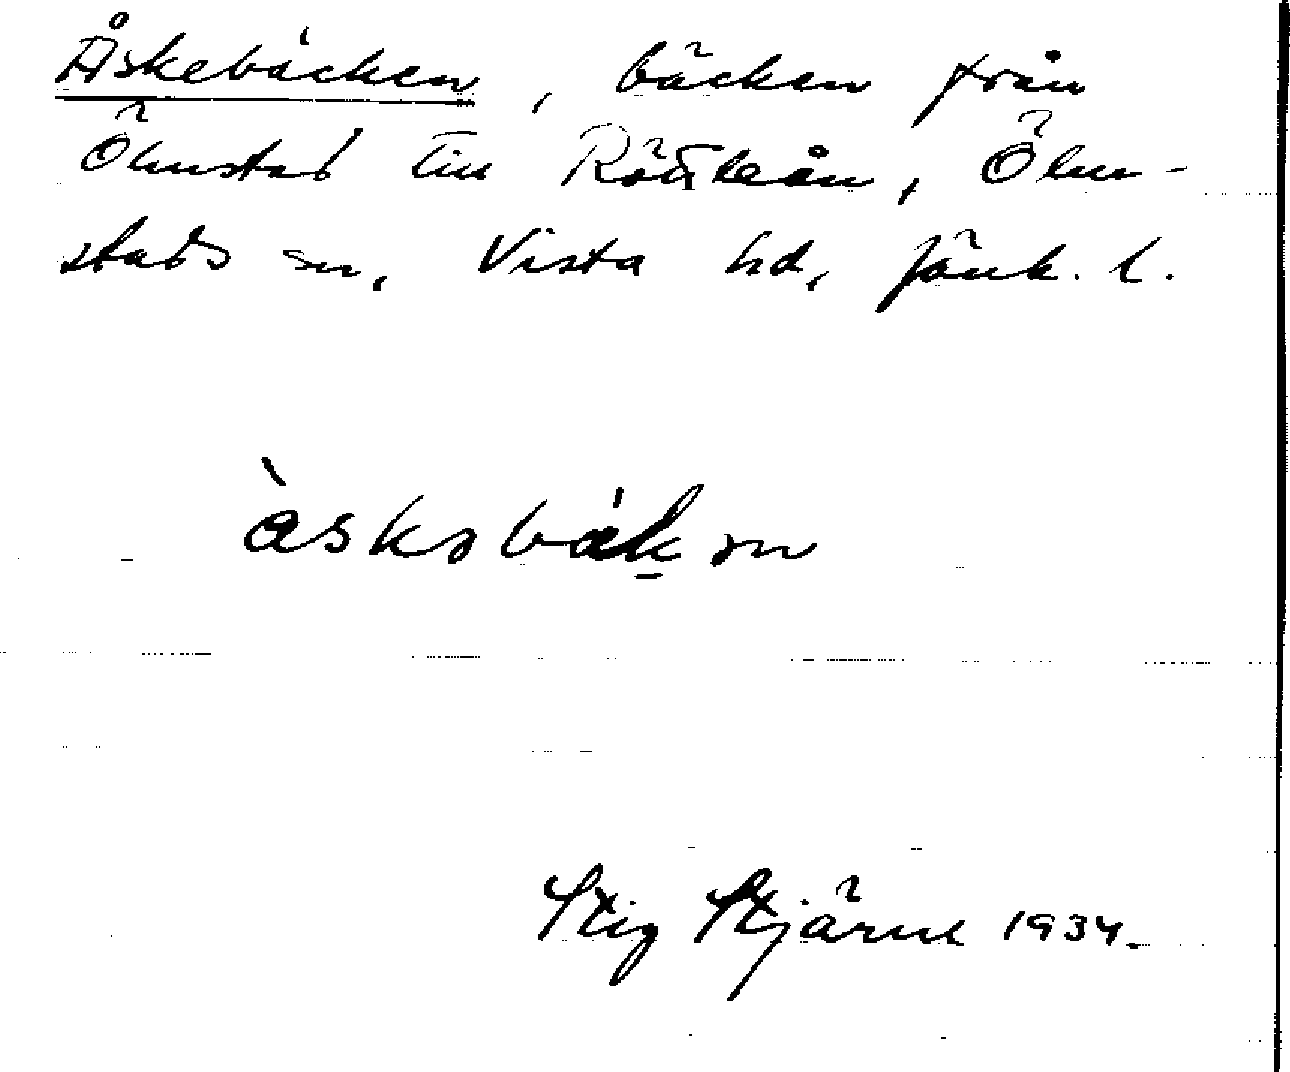 Åskebäcken, bäcken från
Ölmstad till Röttleån, Ölm-
stads sn, Vista hd, Jönk. l.
àskəbäkən
Stig Stjärne 1934.